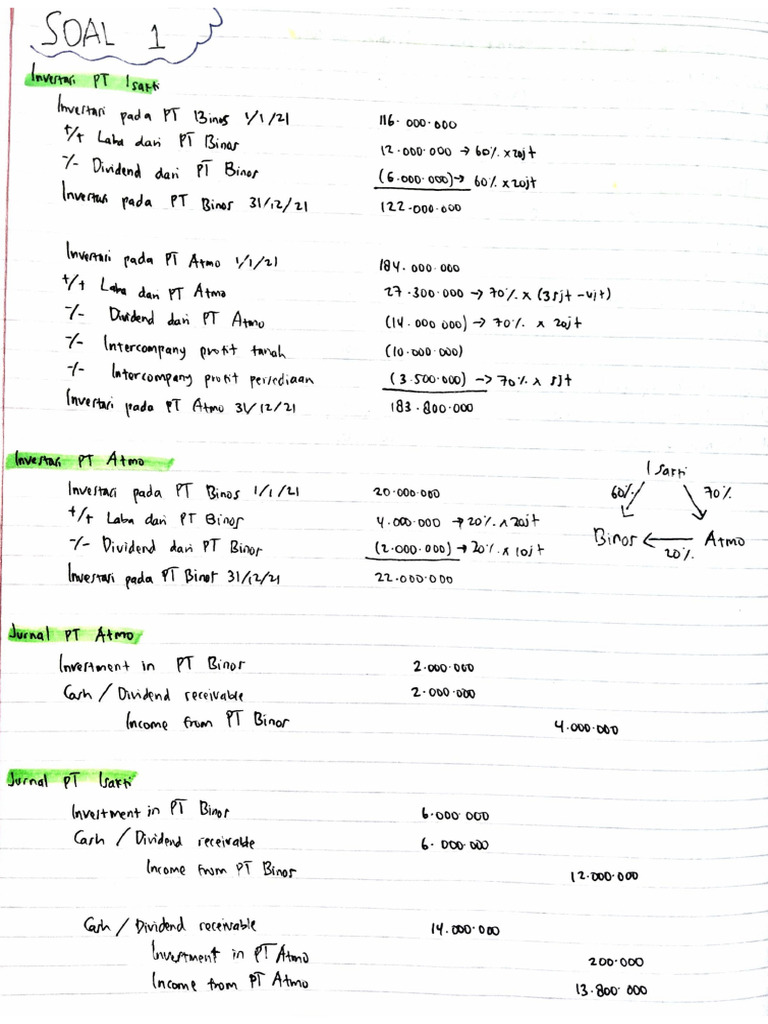 SOAL 1
Investasi PT Isakti
Investasi pada PT Binos 1/1/21 116.000.000
+/+ Laba dari PT Binos 12.000.000 → 60% x 20jt
-/- Dividend dari PT Binos (6.000.000) → 60% x 20jt
Investasi pada PT Binos 31/12/21 122.000.000
Investasi pada PT Atmo 1/1/21 184.000.000
+/+ Laba dari PT Atmo 27.300.000 → 70% x (35jt - 4jt)
-/- Dividend dari PT Atmo (14.000.000) → 70% x 20jt
-/- Intercompany profit tanah (10.000.000)
-/- Intercompany profit persediaan (3.500.000) → 70% x 5jt
Investasi pada PT Atmo 31/12/21 183.800.000
Investasi PT Atmo
Investasi pada PT Binos 1/1/21 20.000.000
+/+ Laba dari PT Binos 4.000.000 → 20% x 20jt
-/- Dividend dari PT Binos (2.000.000) → 20% x 10jt
Investasi pada PT Binos 31/12/21 22.000.000
Isakti
60% 70%
Binos ← Atmo
20%
Jurnal PT Atmo
Investment in PT Binos 2.000.000
Cash / Dividend receivable 2.000.000
Income from PT Binos 4.000.000
Jurnal PT Isakti
Investment in PT Binos 6.000.000
Cash / Dividend receivable 6.000.000
Income from PT Binos 12.000.000
Cash / Dividend receivable 14.000.000
Investment in PT Atmo 200.000
Income from PT Atmo 13.800.000